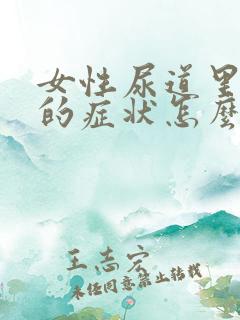 女性尿道里
的症状怎么
王志宏
未经同意禁止转载